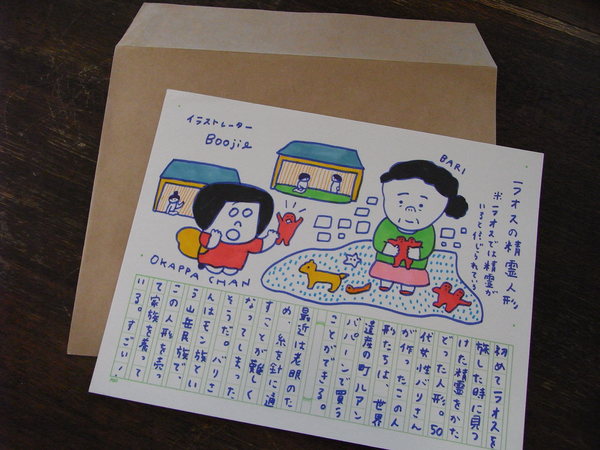 ラオスの精霊人形
※ラオスでは精霊が
いると信じられている
イラストレーター
Boojil
BARI
OKAPPA CHAN
初めてラオスを
旅した時に見つ
けた精霊をかた
どった人形。50
代女性バリさん
が作ったこの人
形たちは、世界
遺産の町ルアン
パバーンで買う
ことができる。
最近は老眼のた
め、糸を針に通
すことが難しく
なってしまった
そうだ。バリさ
んはモン族とい
う山岳民族で、
この人形を売っ
て家族を養って
いる。すごい!